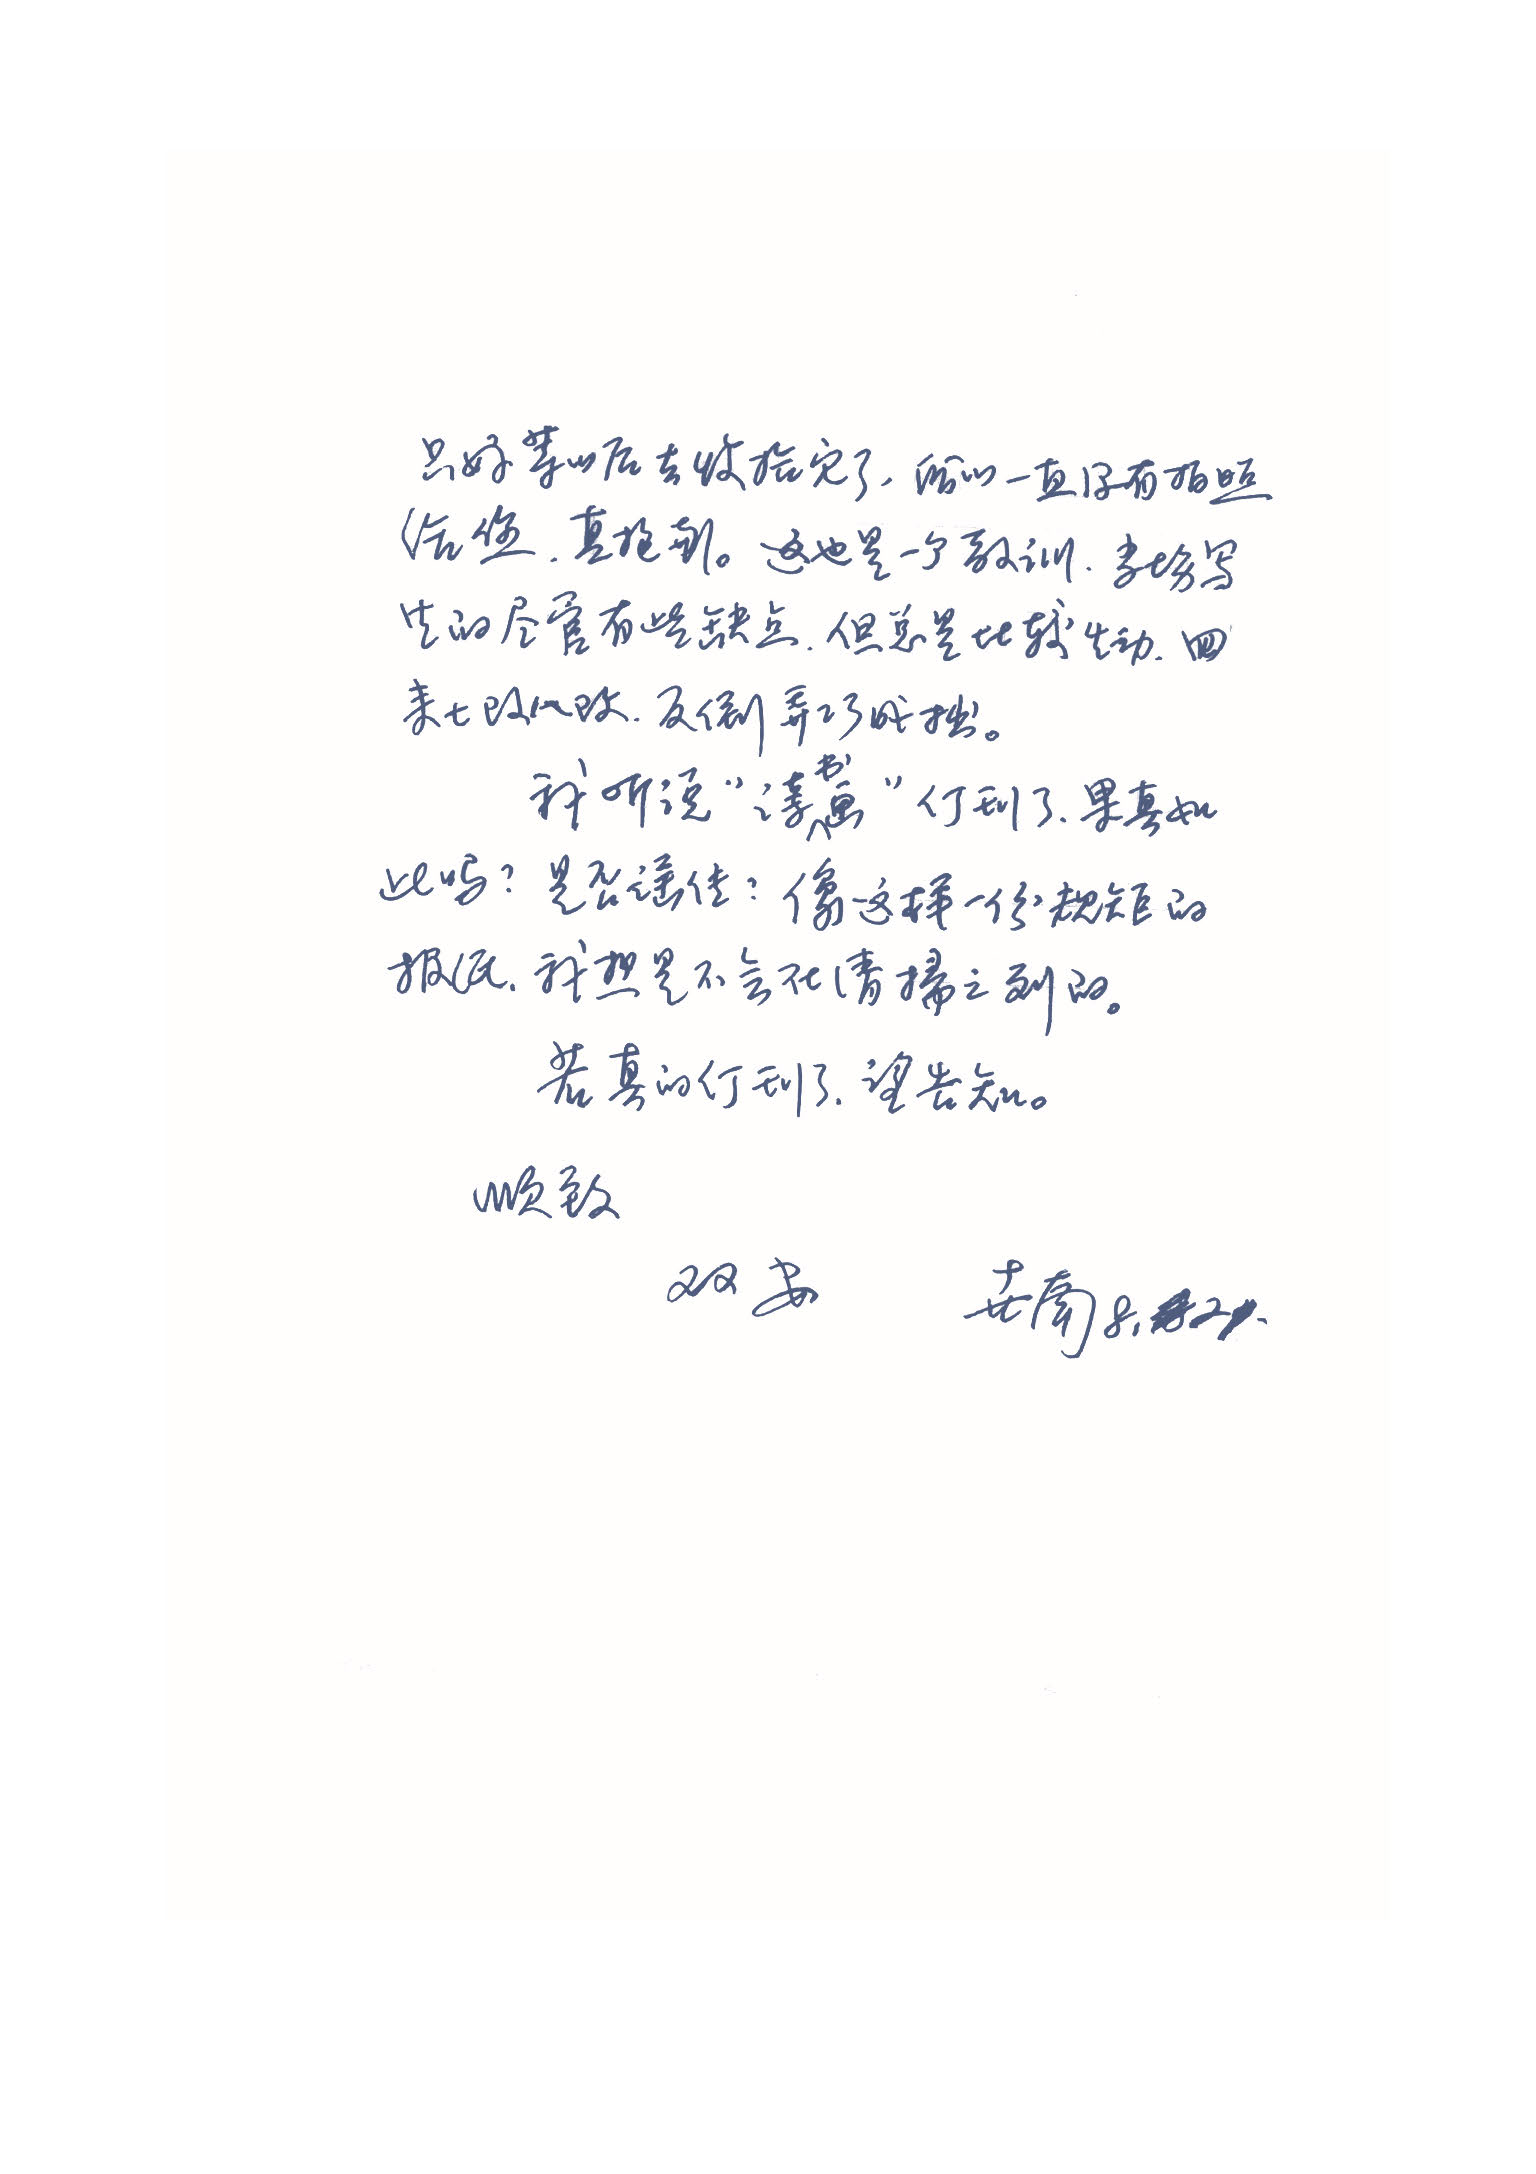 只好等以后去收拾它了，所以一直没有拍照
给您，真抱歉。这也是一个教训，当场写
生的尽管有些缺点，但总是比较生动，回
来七改八改，反倒弄巧成拙。
我听说“读书画”停刊了，果真如
此吗？是否谣传？像这样一份规矩的
报纸，我想是不会在清扫之列的。
若真的停刊了，望告知。
顺致
双安
世南 8.